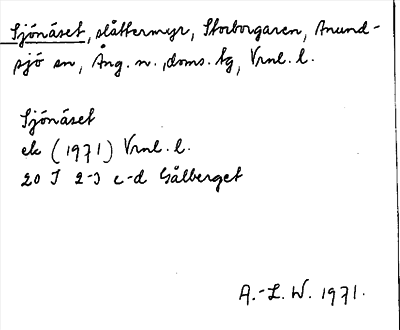 Sjönäset, slåttermyr, Storborgaren, Anund-
sjö sn, Ång. n., doms. tg, Vrnl. l.
Sjönäset
ek (1971) Vrnl. l.
20 I 2-3 c-d Gålberget
A.-L. W. 1971.